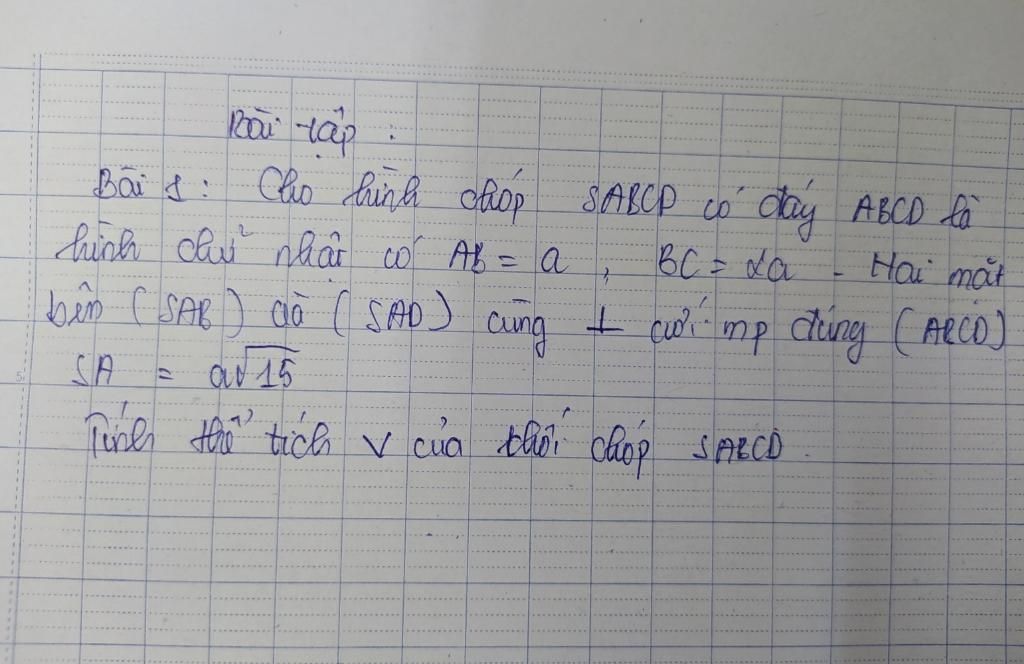 Bài tập :
Bài 1 : Cho hình chóp SABCD có đáy ABCD là
hình chữ nhật có AB = a , BC = 2a - Hai mặt
bên (SAB) và (SAD) cùng ⊥ với mp đúng (ABCD)
SA = a√15
Tính thể tích V của khối chóp SABCD.